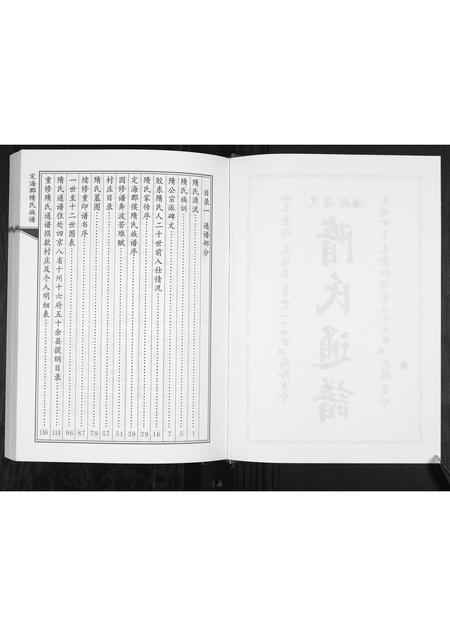 目录一 通谱部分
隋氏源流 1
隋氏族训 5
隋公宗派碑文 7
胶东隋氏人二十世前入仕情况 16
隋氏家传序 29
定海郡侯隋氏族谱序 39
因修谱奔波苦难赋 51
村庄目录 57
隋氏墓图 79
续修重印谱书序 87
一世至十二世图表 96
隋氏通谱住处四京八省十州十六府五十余县提纲目录 114
重修隋氏通谱捐款村庄及个人明细表 116
定海郡隋氏族谱
隋氏通谱